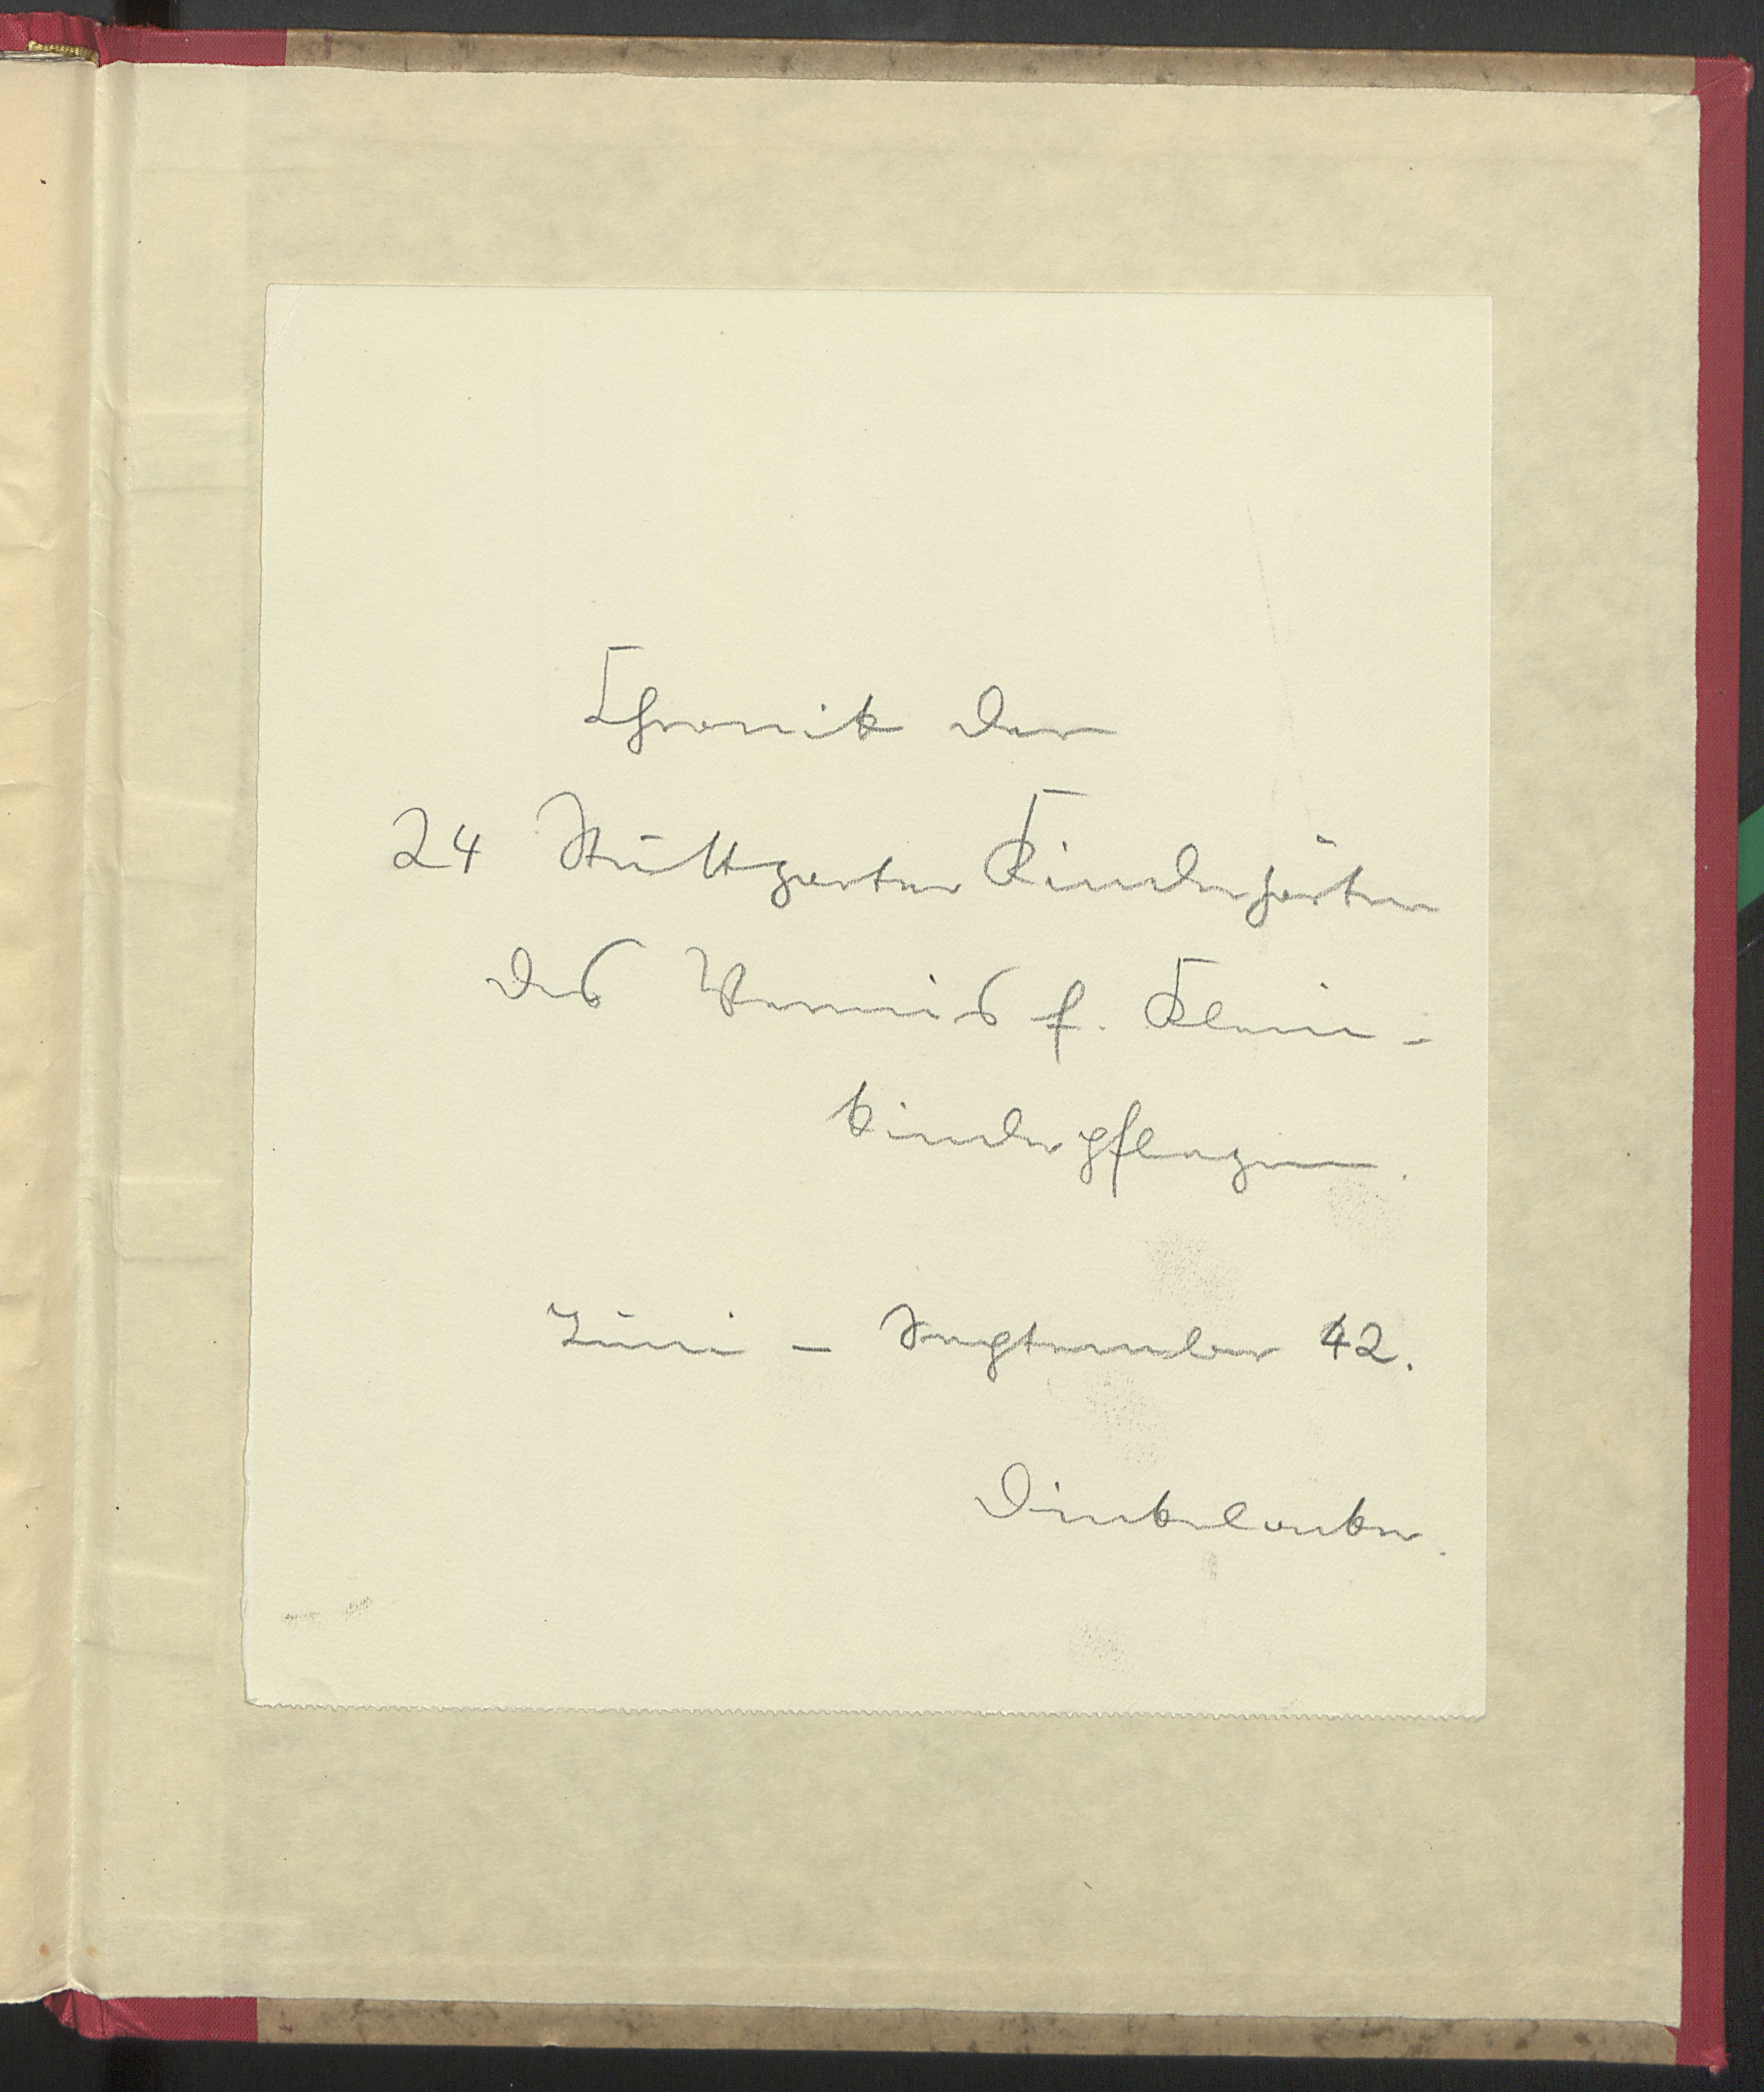 Chronik der
24 Stuttgarter Kindergärten
des Vereins f. Klein-
kinderpflegen.
Juni - September 42.
Dinkelacker.